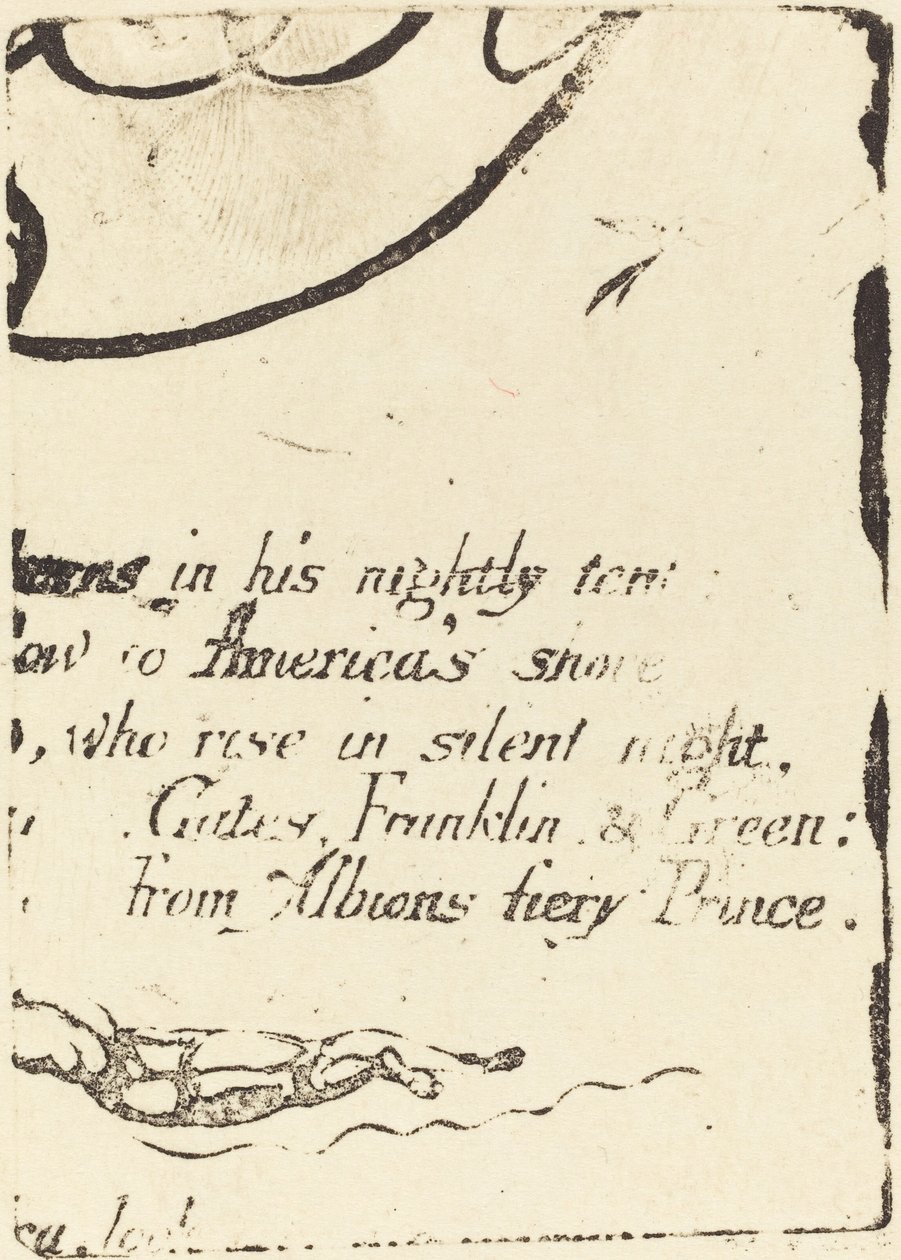 burns in his nightly tent
low to America's shore
, who rise in silent night,
Gates, Franklin & Green:
From Albions fiery Prince.
ca. look